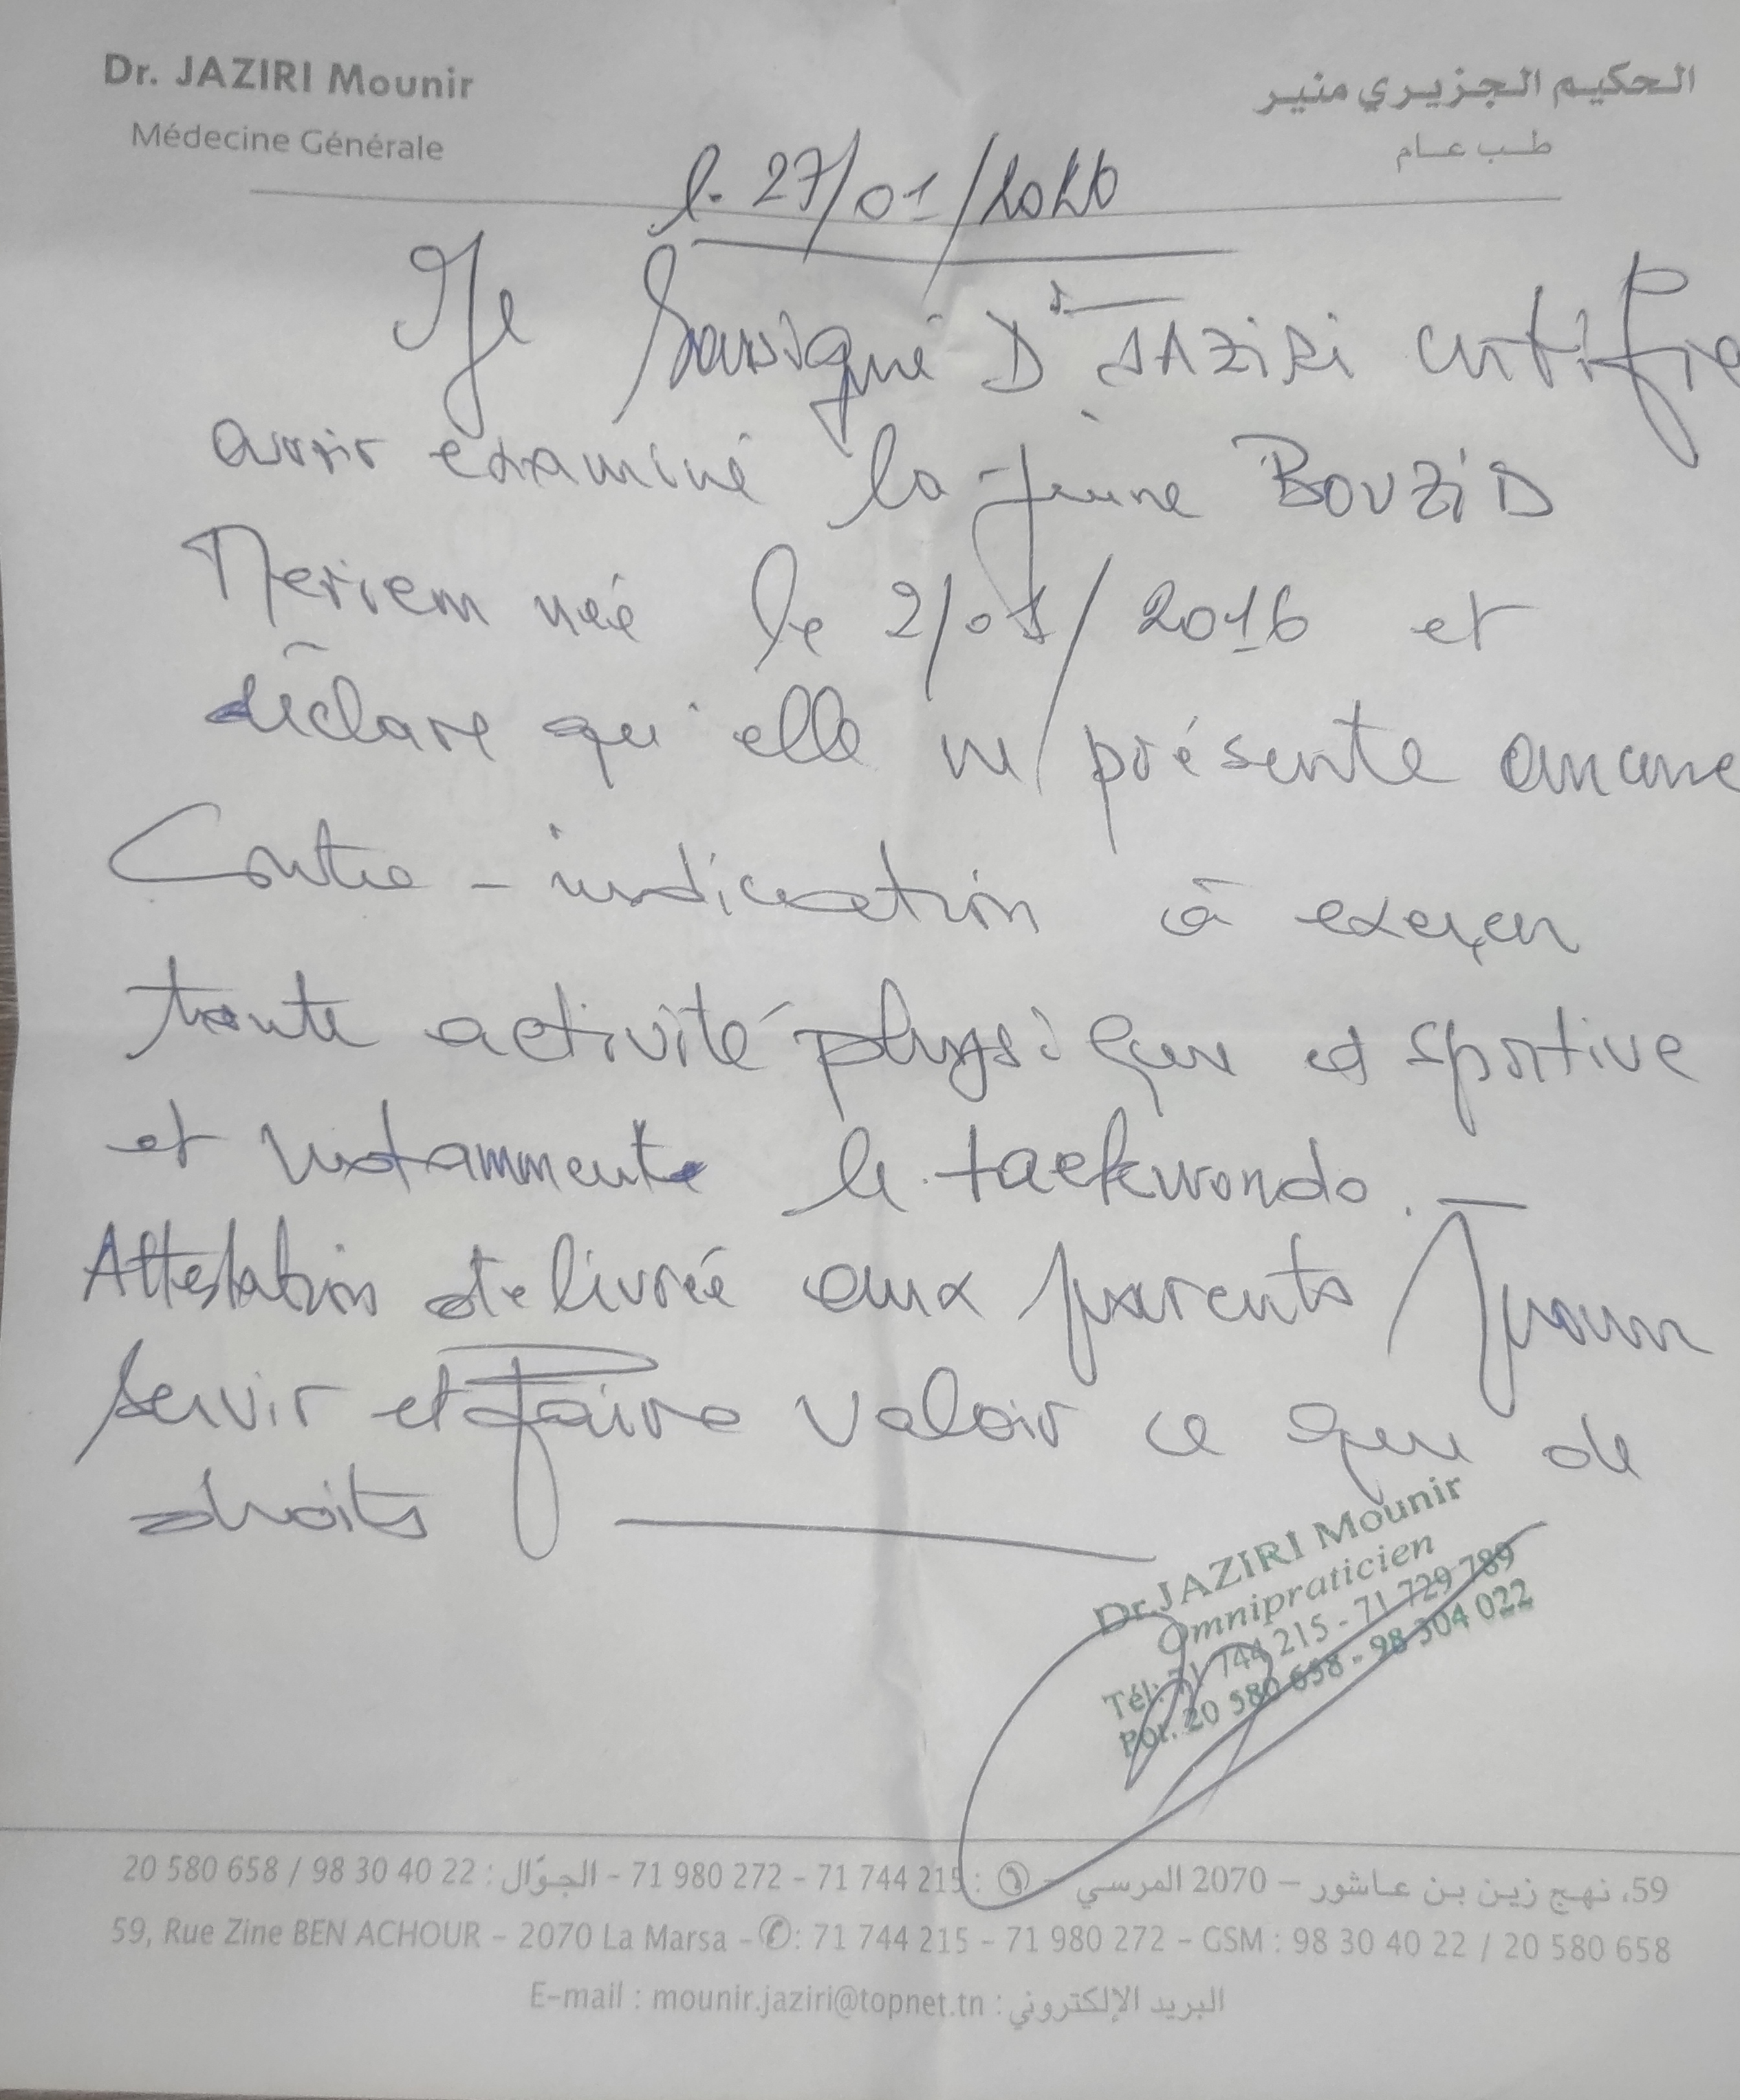 Dr. JAZIRI Mounir
Médecine Générale
الحكيم الجزيري منير
طب عام
le 27/01/2026
Je soussigné Dr JAZIRI certifie
avoir examiné la jeune BOUZID
Meriem née le 2/01/2016 et
déclare qu'elle ne présente aucune
Contre-indication à exercer
toute activité physique et sportive
et notamment le taekwondo.
Attestation délivrée aux parents pour
servir et faire valoir ce que de
droits
Dr JAZIRI Mounir
Omnipraticien
Tél: 71 744 215 - 71 729 789
Por. 20 580 658 - 98 304 022
59، نهج زين بن عاشور – 2070 المرسى – ✆ : 71 744 215 – 71 980 272 – الجوّال : 20 580 658 / 98 30 40 22
59, Rue Zine BEN ACHOUR – 2070 La Marsa – ✆: 71 744 215 – 71 980 272 – GSM : 98 30 40 22 / 20 580 658
E-mail : mounir.jaziri@topnet.tn : البريد الإلكتروني